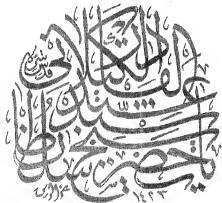 يا حضرت شيخ سلطان
سيد عبد
القادر الكيلاني
قدس سره